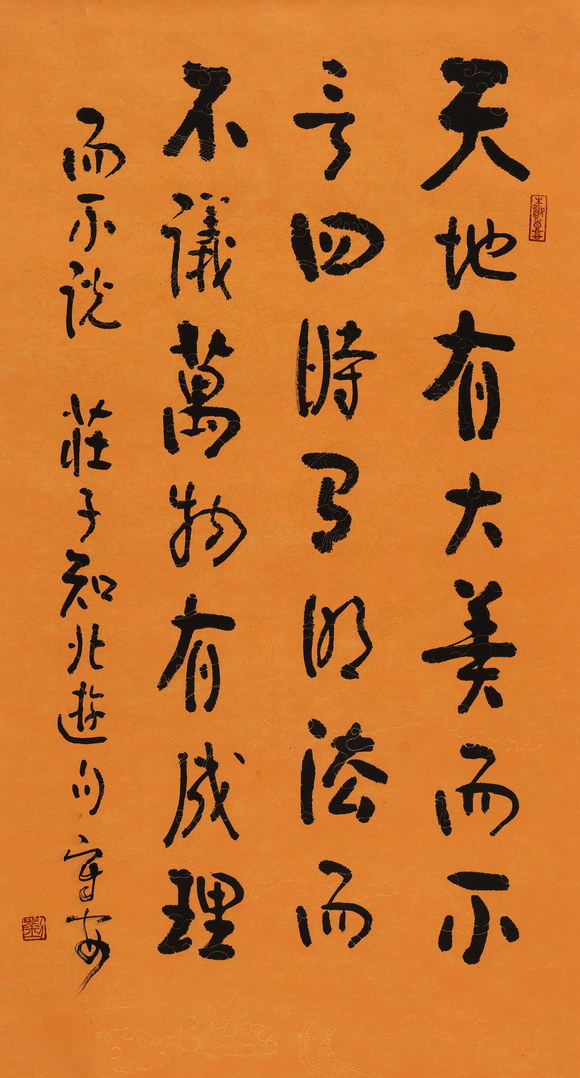 天地有大美而不
言四时有明法而
不議萬物有成理
而不说 莊子知北遊句 守安